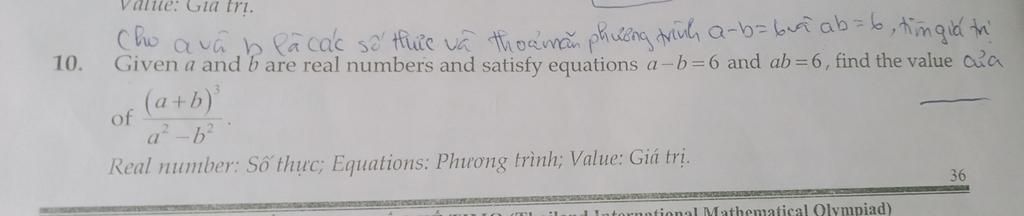 Value: Giá trị.
Cho a và b là các số thực và thoả mãn phương trình a-b=6 và ab=6, tìm giá trị
10. Given a and b are real numbers and satisfy equations a-b=6 and ab=6, find the value của
of (a+b)³ / a²-b² .
Real number: Số thực; Equations: Phương trình; Value: Giá trị.
36
International Mathematical Olympiad)